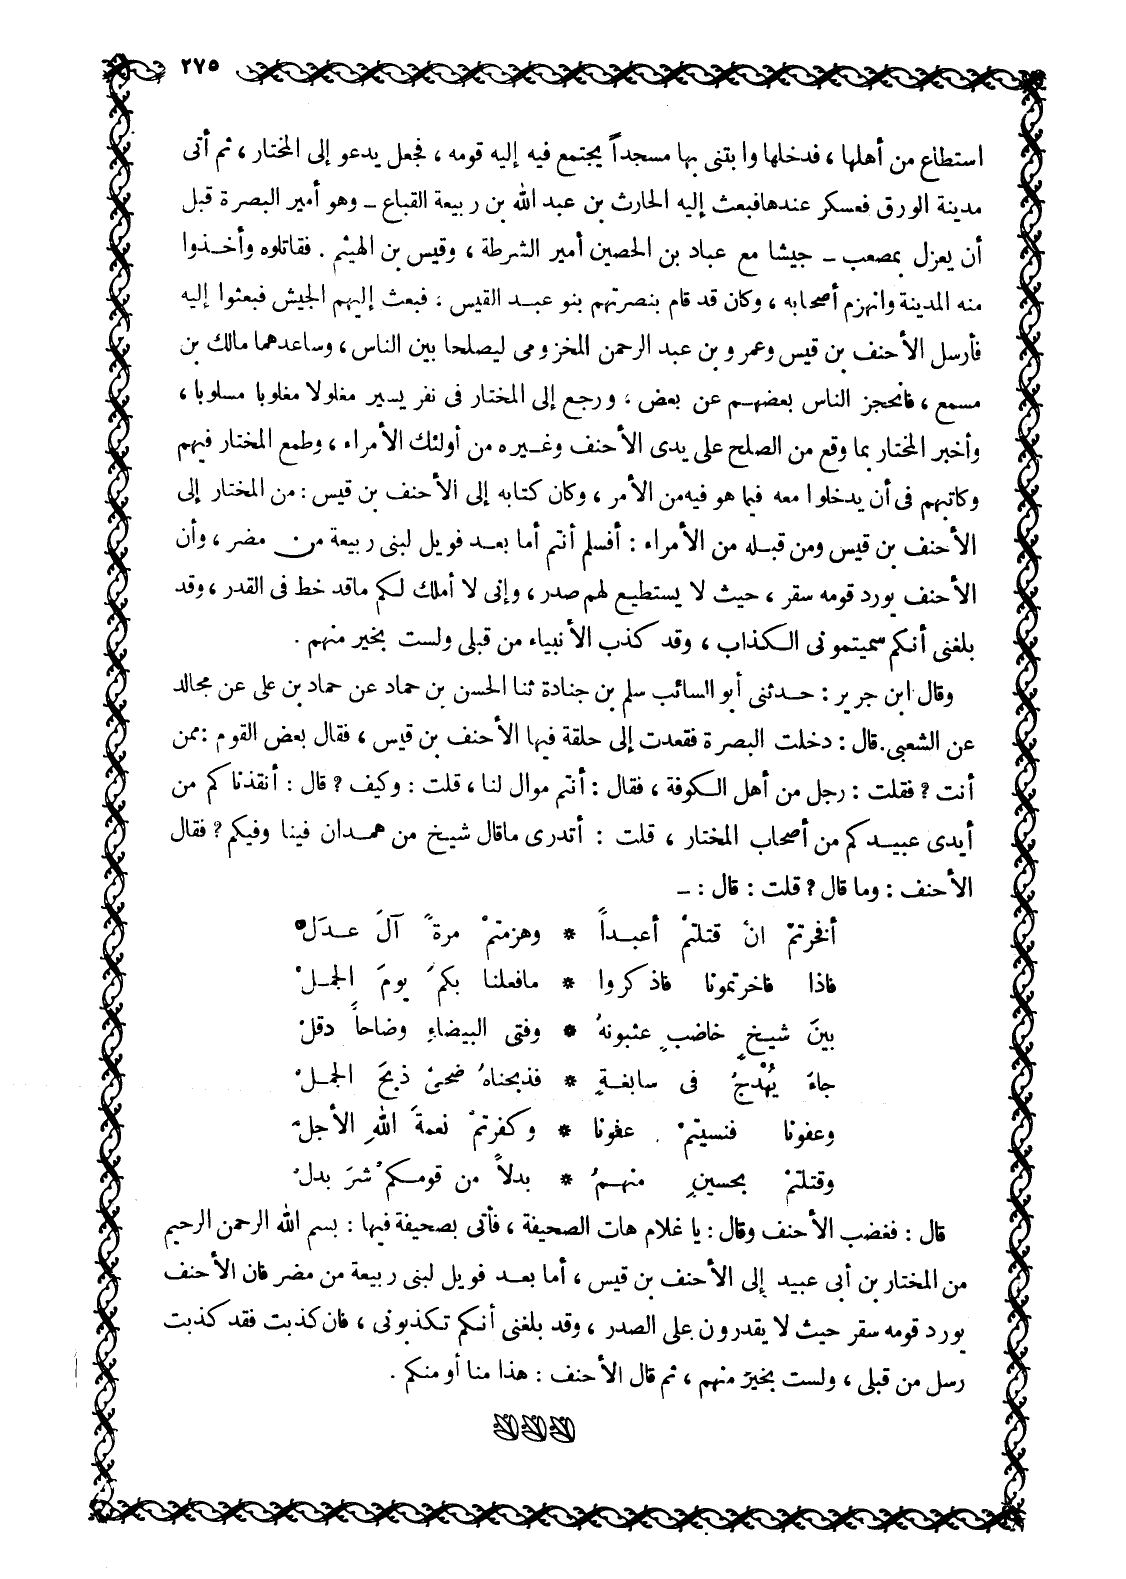 ٢٧٥
استطاع من أهلها ، فدخلها وابتنى بها مسجداً يجتمع فيه إليه قومه ، فجعل يدعو إلى المختار ، ثم أتى
مدينة الورق فعسكر عندها فبعث إليه الحارث بن عبد الله بن ربيعة القباع ــ وهو أمير البصرة قبل
أن يعزل بمصعب ــ جيشا مع عباد بن الحصين أمير الشرطة ، وقيس بن الهيثم . فقاتلوه وأخذوا
منه المدينة وانهزم أصحابه ، وكان قد قام بنصرتهم بنو عبد القيس ، فبعث إليهم الجيش فبعثوا إليه
فأرسل الأحنف بن قيس وعمرو بن عبد الرحمن المخزومى ليصلحا بين الناس ، وساعدهما مالك بن
مسمع ، فانحجز الناس بعضهم عن بعض ، ورجع إلى المختار فى نفر يسير مغلولا مغلوبا مسلوبا ،
وأخبر المختار بما وقع من الصلح على يدى الأحنف وغيره من أولئك الأمراء ، وطمع المختار فيهم
وكاتبهم فى أن يدخلوا معه فيما هو فيه من الأمر ، وكان كتابه إلى الأحنف بن قيس : من المختار إلى
الأحنف بن قيس ومن قبله من الأمراء : أفسلم أنتم أما بعد فويل لبنى ربيعة من مضر ، وأن
الأحنف يورد قومه سقر ، حيث لا يستطيع لهم صدر ، وإنى لا أملك لكم ماقد خط فى القدر ، وقد
بلغنى أنكم سميتمونى الكذاب ، وقد كذب الأنبياء من قبلى ولست بخير منهم .
وقال ابن جرير : حدثنى أبو السائب سلم بن جنادة ثنا الحسن بن حماد عن حماد بن على عن مجالد
عن الشعبى . قال : دخلت البصرة فقعدت إلى حلقة فيها الأحنف بن قيس ، فقال بعض القوم : ممن
أنت ؟ فقلت : رجل من أهل الكوفة ، فقال : أنتم موال لنا ، قلت : وكيف ؟ قال : أنقذناكم من
أيدى عبيدكم من أصحاب المختار ، قلت : أتدرى ماقال شيخ من همدان فينا وفيكم ؟ فقال
الأحنف : وما قال ؟ قلت : قال : ــ
أفخرتمْ انْ قتلتمْ أعبداً * وهزمتمْ مرةً آلَ عدَلْ
فاذا فاخرتمونا فاذكروا * مافعلنا بكمَ يومَ الجملْ
بينَ شيخٍ خاضبٍ عثنونهُ * وفتى البيضاءِ وضاحاً دقلْ
جاءَ يُهْدجُ فى سابغةٍ * فذبحناهُ ضحىً ذبحَ الجملْ
وعفونا فنسيتمْ عفونا * وكفرتمْ نعمةَ اللهِ الأجلْ
وقتلتمْ بحسينٍ منهمُ * بدلاً من قومكمْ شرَ بدلْ
قال : فغضب الأحنف وقال : يا غلام هات الصحيفة ، فأتى بصحيفة فيها : بسم الله الرحمن الرحيم
من المختار بن أبى عبيد إلى الأحنف بن قيس ، أما بعد فويل لبنى ربيعة من مضر فان الأحنف
يورد قومه سقر حيث لا يقدرون على الصدر ، وقد بلغنى أنكم تكذبونى ، فان كذبت فقد كذبت
رسل من قبلى ، ولست بخير منهم ، ثم قال الأحنف : هذا منا أو منكم .